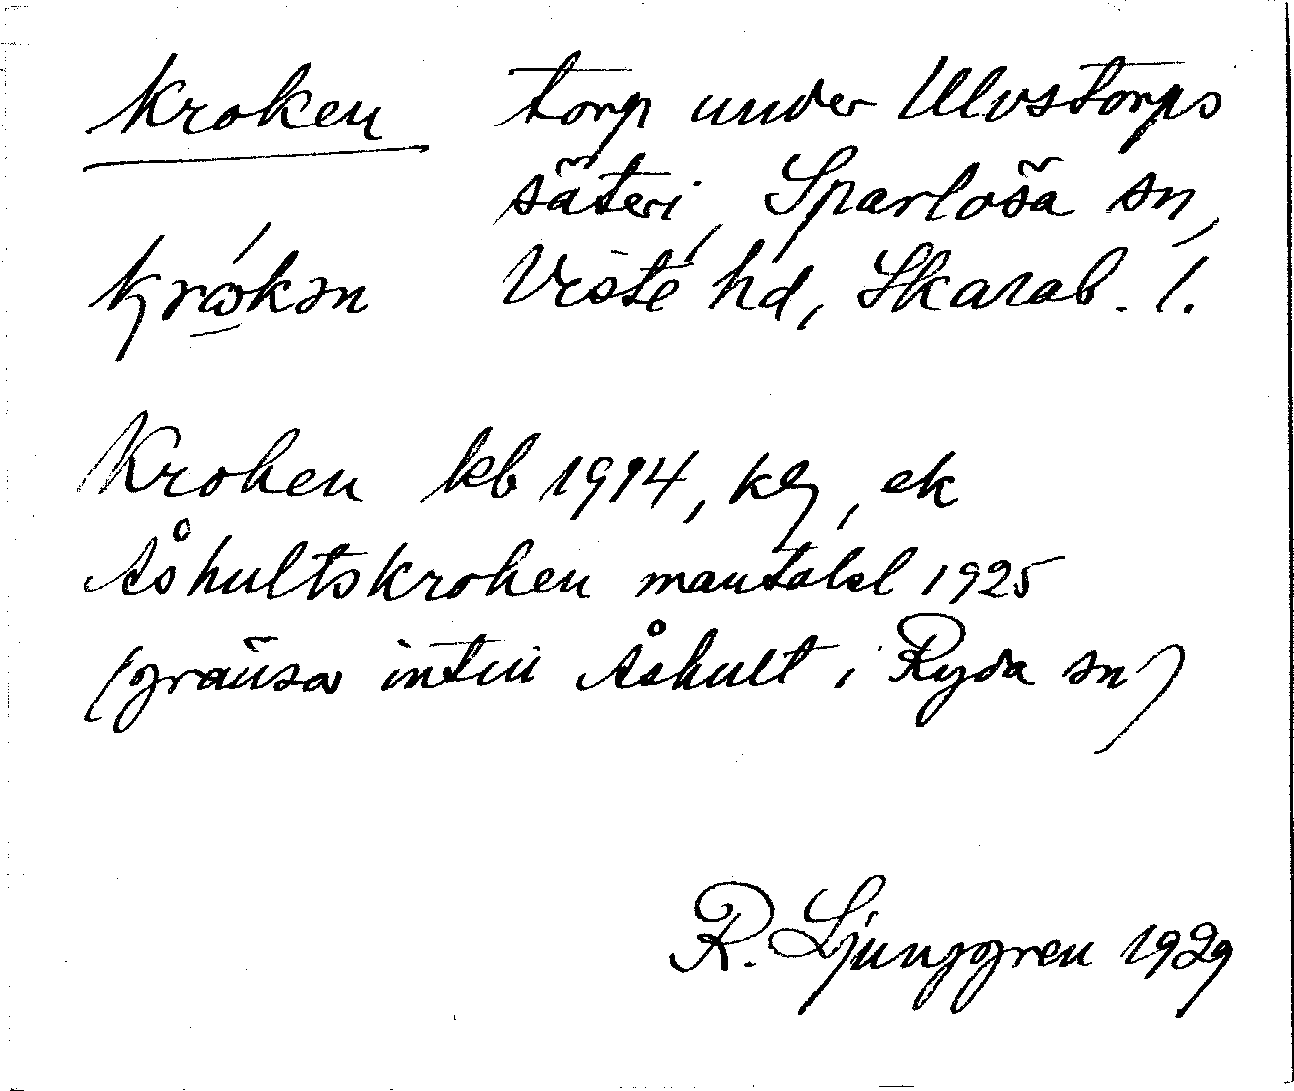 Kroken torp under Ulvstorps
säteri, Sparlösa sn,
krókən Viste hd, Skarab. l.
Kroken kb 1914, kg, ek
Åshultskroken mantalsl 1925
(gränsar intill Åshult i Ryda sn)
R. Ljunggren 1929